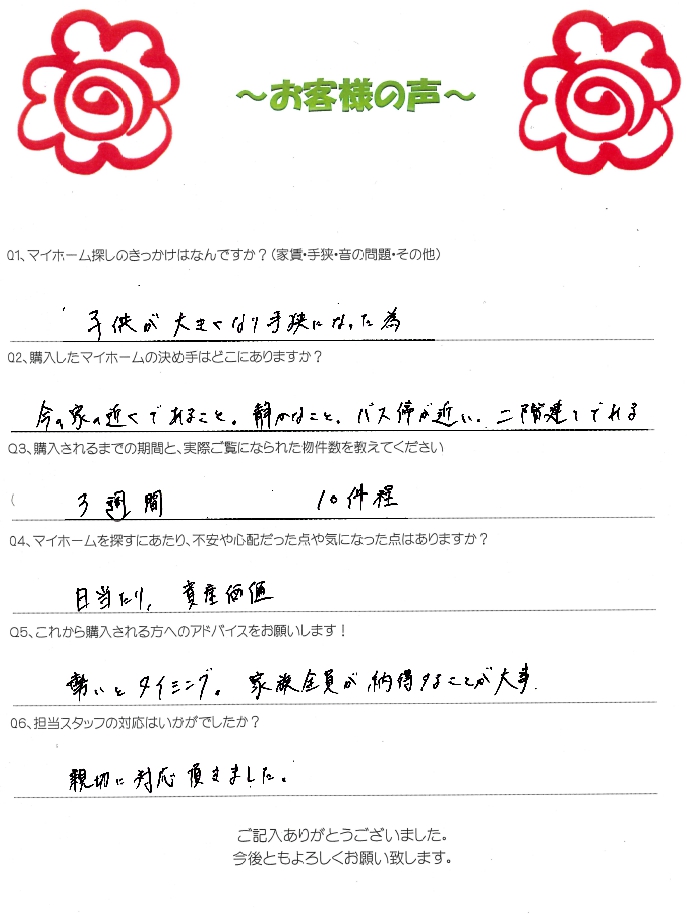 ～お客様の声～
Q1、マイホーム探しのきっかけはなんですか？（家賃・手狭・音の問題・その他）
子供が大きくなり手狭になった為
Q2、購入したマイホームの決め手はどこにありますか？
今の家の近くであること。静かなこと。バス停が近い。二階建てである
Q3、購入されるまでの期間と、実際ご覧になられた物件数を教えてください
3週間 10件程
Q4、マイホームを探すにあたり、不安や心配だった点や気になった点はありますか？
日当たり、資産価値
Q5、これから購入される方へのアドバイスをお願いします！
勢いとタイミング。家族全員が納得することが大事
Q6、担当スタッフの対応はいかがでしたか？
親切に対応頂きました。
ご記入ありがとうございました。
今後ともよろしくお願い致します。